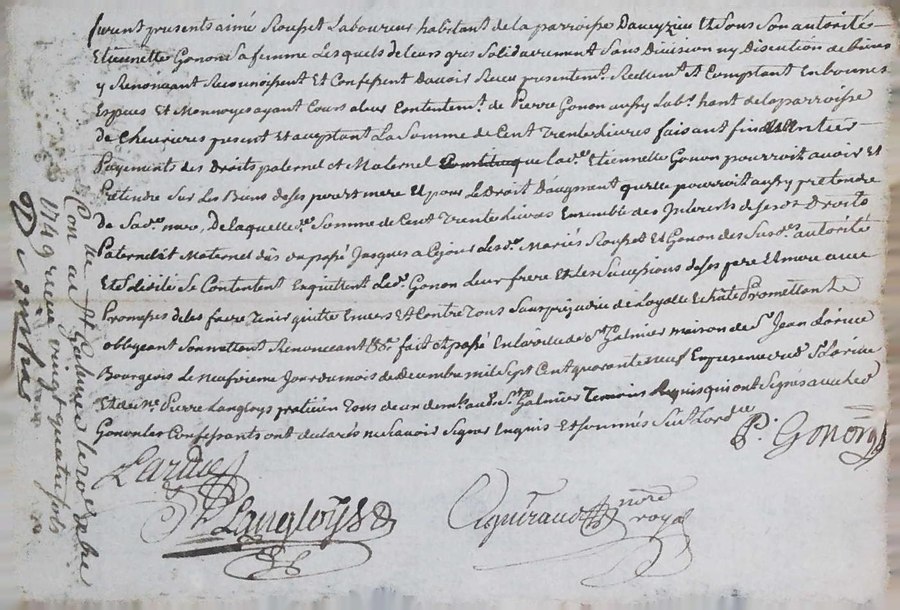 furent presents aimé Rouset Laboureur habitant de la parroisse Daveyzieu Et Sous Son autorités
Etiennette Gonon Sa femme Lesquels de leurs grés Solidairement Sans Division ny Discution de biens
y Renonçant Reconnoissent Et Confessent Davoir Receu presentemt. Reellemt. Et Comptant En bonnes
Espces Et Monnoyes ayant Cours a leur Contentemt. de Pierre Gonon aussy Labr. hant de la parroisse
de Chevrieres present Et aceptant La Somme de Cent Trente Livres faisant fin Entier
Payements des Droits paternel et Maternel que lade. Etiennette Gonon pourroit avoir Et
Pretendre Sur Les Biens de ses pere et mere Et pour Le Droit Daugment quelle pourroit aussy pretendre
de Sade. mere, De laquelle de. Somme de Cent Trente Livres Ensemble des Interests de ses dt. Droits
Paternel et Maternel dûs du passé Jusques a Ce jour Lesds. Mariés Rouset Et Gonon des Susdes. autorité
Et Se Contentent En quittent Led. Gonon Leur frere Et Les Successions de ses pere Et mere avec
Promesses de les faire Tenir quitte Envers Et Contre Tous Sans prejudice de Loyalle Promettant
obligeant Soumettant Renonceant fait et passé En la ville de St. Galmier maison de Sr. Jean Larive
Bourgeois Le Neufvieme Jour du mois de Decembre mil Sept Cent quarante neuf En presence dud. Sr. Larive
Et de Me. Pierre Langloys praticien Tous deux dem. aud. St. Galmier Temoins Requis qui ont Signés avec led
Gonon Les Confessants ont declarés ne Scavoir Signer Enquis Et Sommés Suivt. Lord ce
P. Gonon
Larive
P Langloys
Aguiraud nore royal
Con au St Galmier le 10 xbre
1749 receu vingt quatre sols